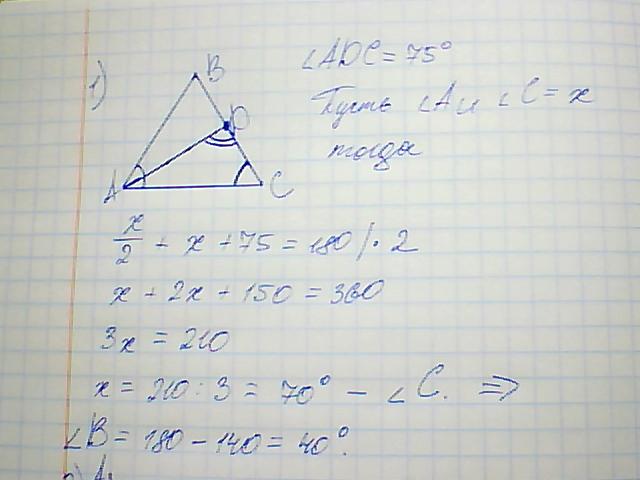 1)
B
D
A
C
∠ADC = 75°
Пусть ∠A и ∠C = x
тогда
x/2 + x + 75 = 180 | · 2
x + 2x + 150 = 360
3x = 210
x = 210 : 3 = 70° - ∠C. ⇒
∠B = 180 - 140 = 40°.